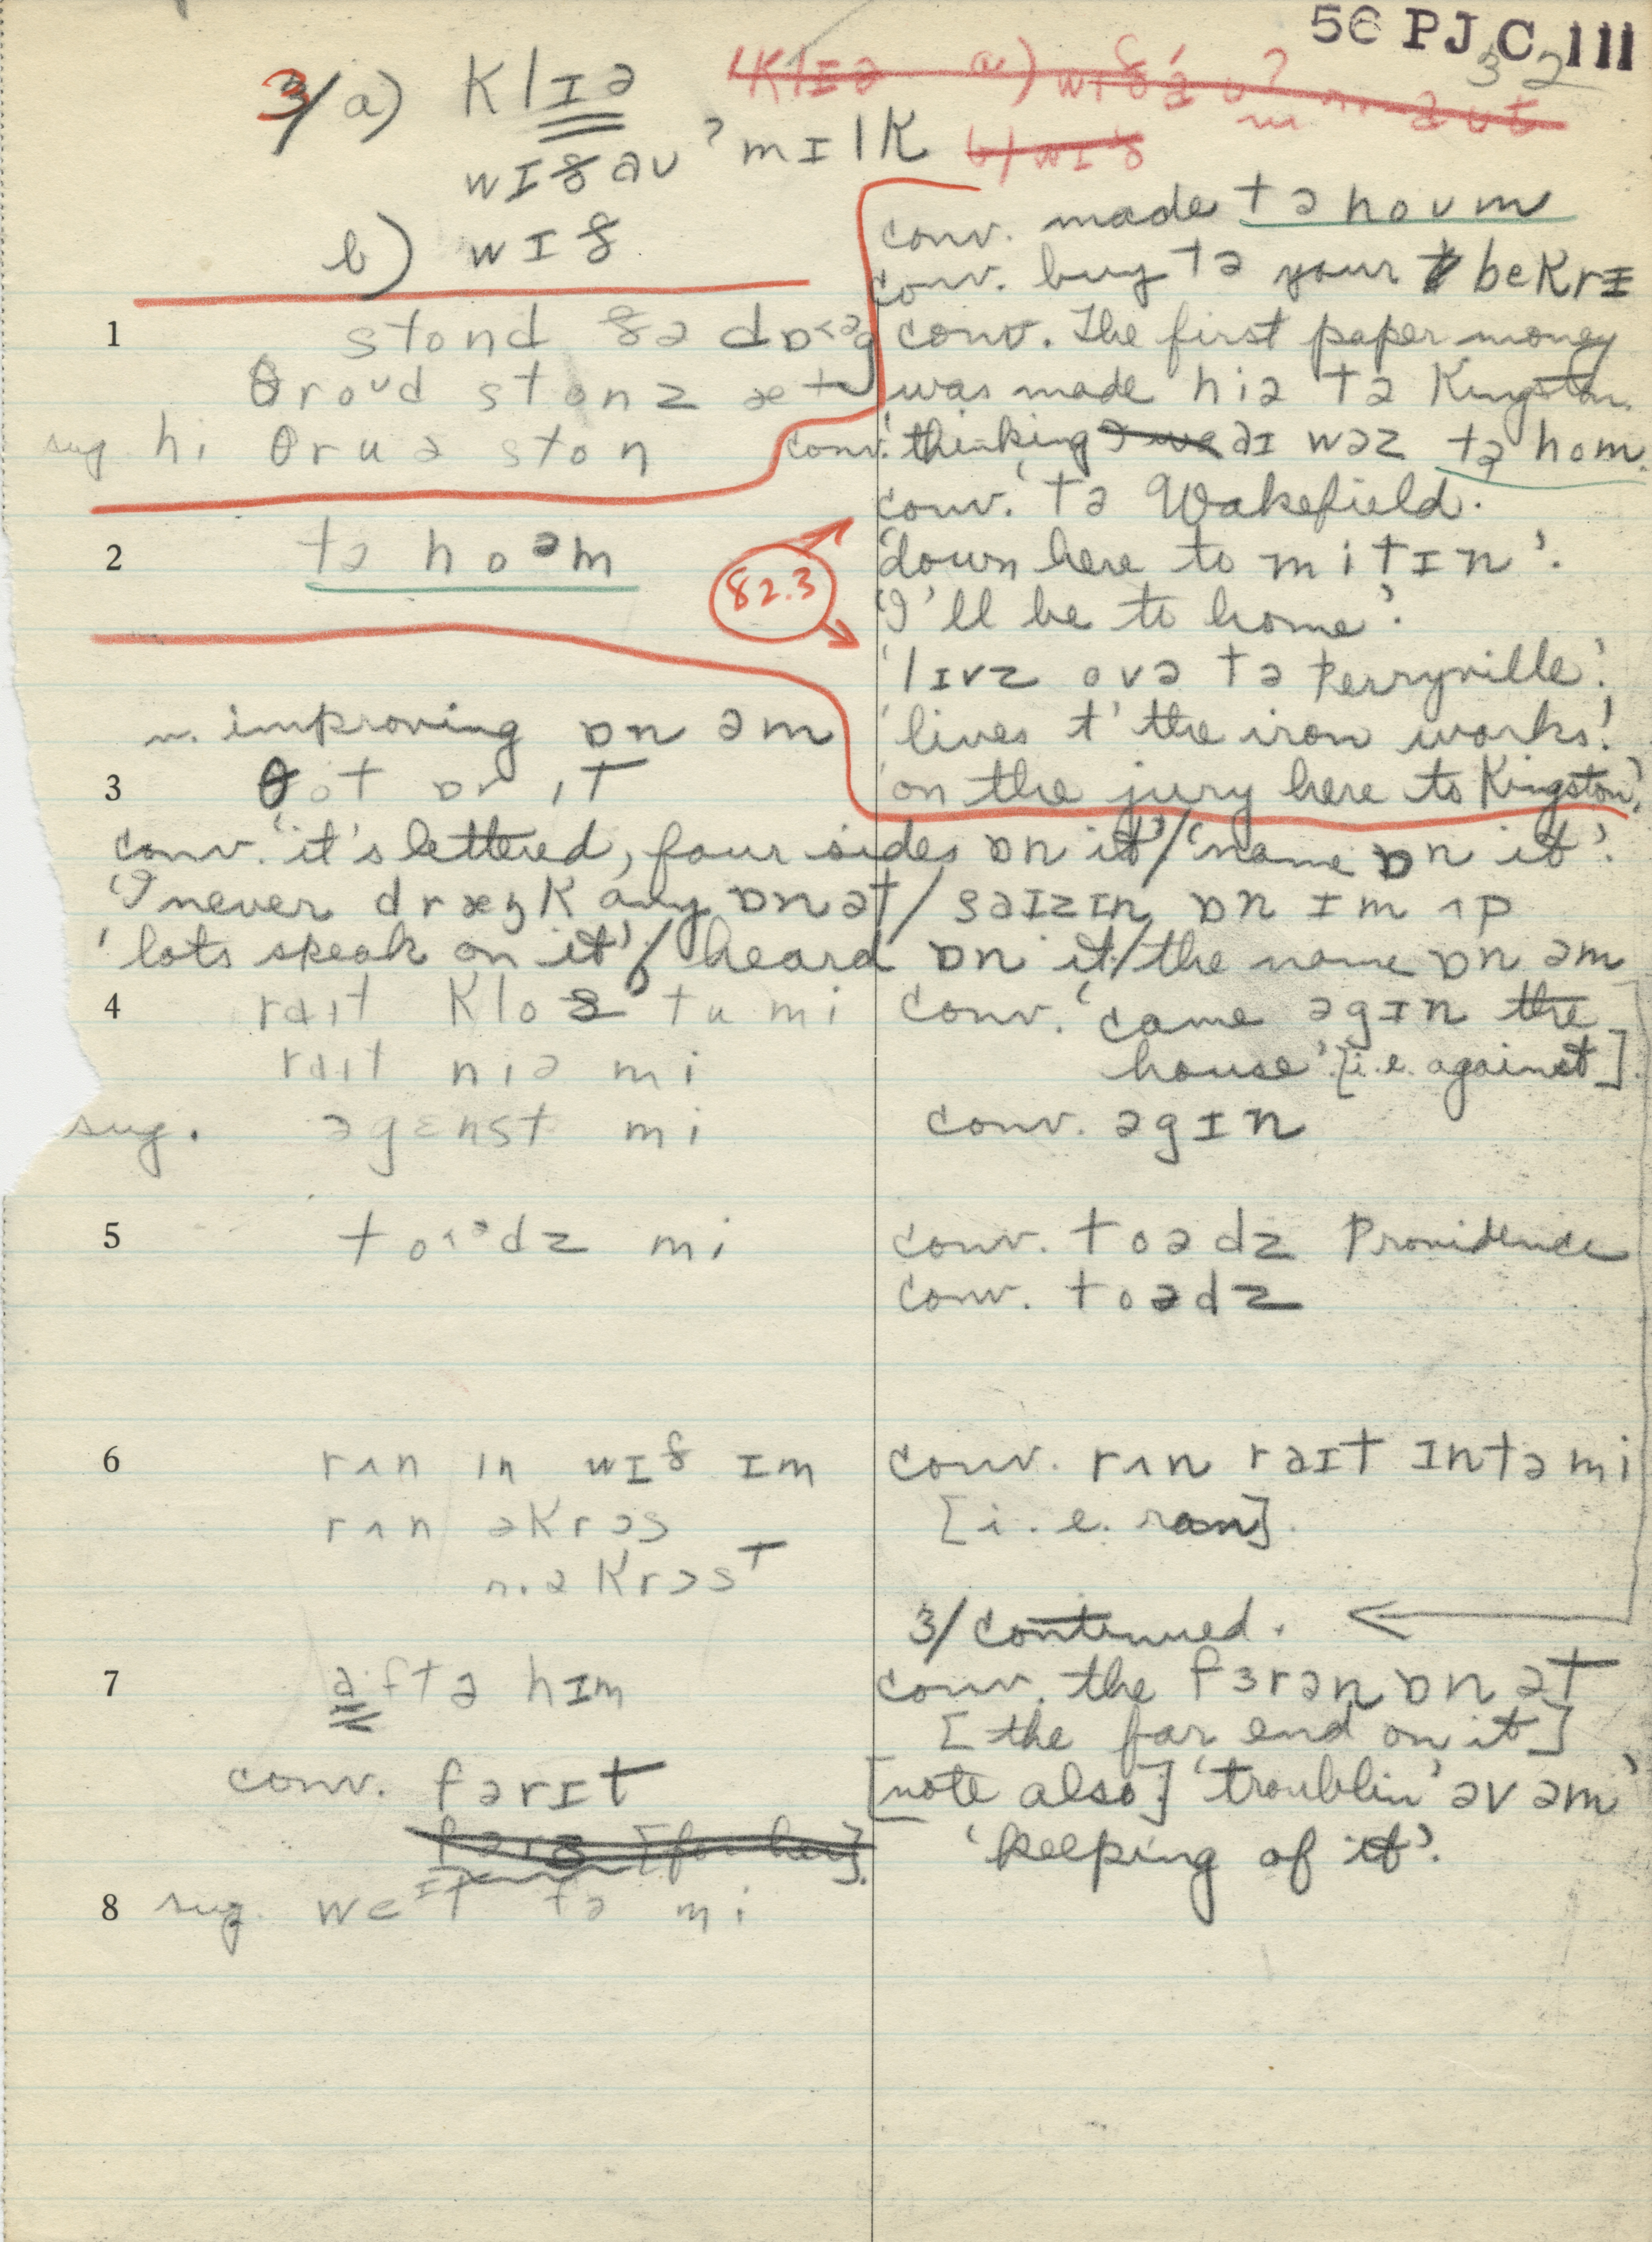 56 PJC 111
32
3/ a) klɪə
wɪðaʊ ʔ mɪlk
b) wɪð
conv. made tə hoʊm
conv. buy tə your bekrɪ
1 stond ðə dɒ<əg
conv. The first paper money
θroʊd stonz æt
was made hiə tə Kingston
sug. hi θruə ston
conv. 'thinking aɪ wəz tə hom.
conv. 'tə Wakefield.
2 tə hoəm
82.3
'down here to mitɪn'.
'I'll be to home'.
'lɪvz ovə tə Perryville.'
n. improving ɒn əm
'lives t' the iron works.'
3 θot ɒn ɪt
'on the jury here to Kingston'.
conv. 'it's lettered, four sides ɒn it' / 'name ɒn it'.
'I never dræŋk any ɒn ət / saɪzɪn ɒn ɪm ʌp
'lots speak on it' / heard ɒn it / the name ɒn əm
4 raɪt kloz tu mi
conv. 'came əgɪn the
raɪt niə mi
house' [i.e. against].
sug. əgɛnst mi
conv. əgɪn
5 to˂ədz mi
conv. toədz Providence
conv. toədz
6 rʌn ɪn wɪð ɪm
conv. rʌn raɪt ɪntə mi
rʌn əkrɔs
[i.e. ran].
n. əkrɔst
3/ continued.
7 aftə hɪm
conv. the fɜrən ɒn ət
[the far end on it]
conv. fərɪt
[note also] 'troublin' əv əm'
[for her].
'keeping of it'.
8 sug. weɪt tə mi